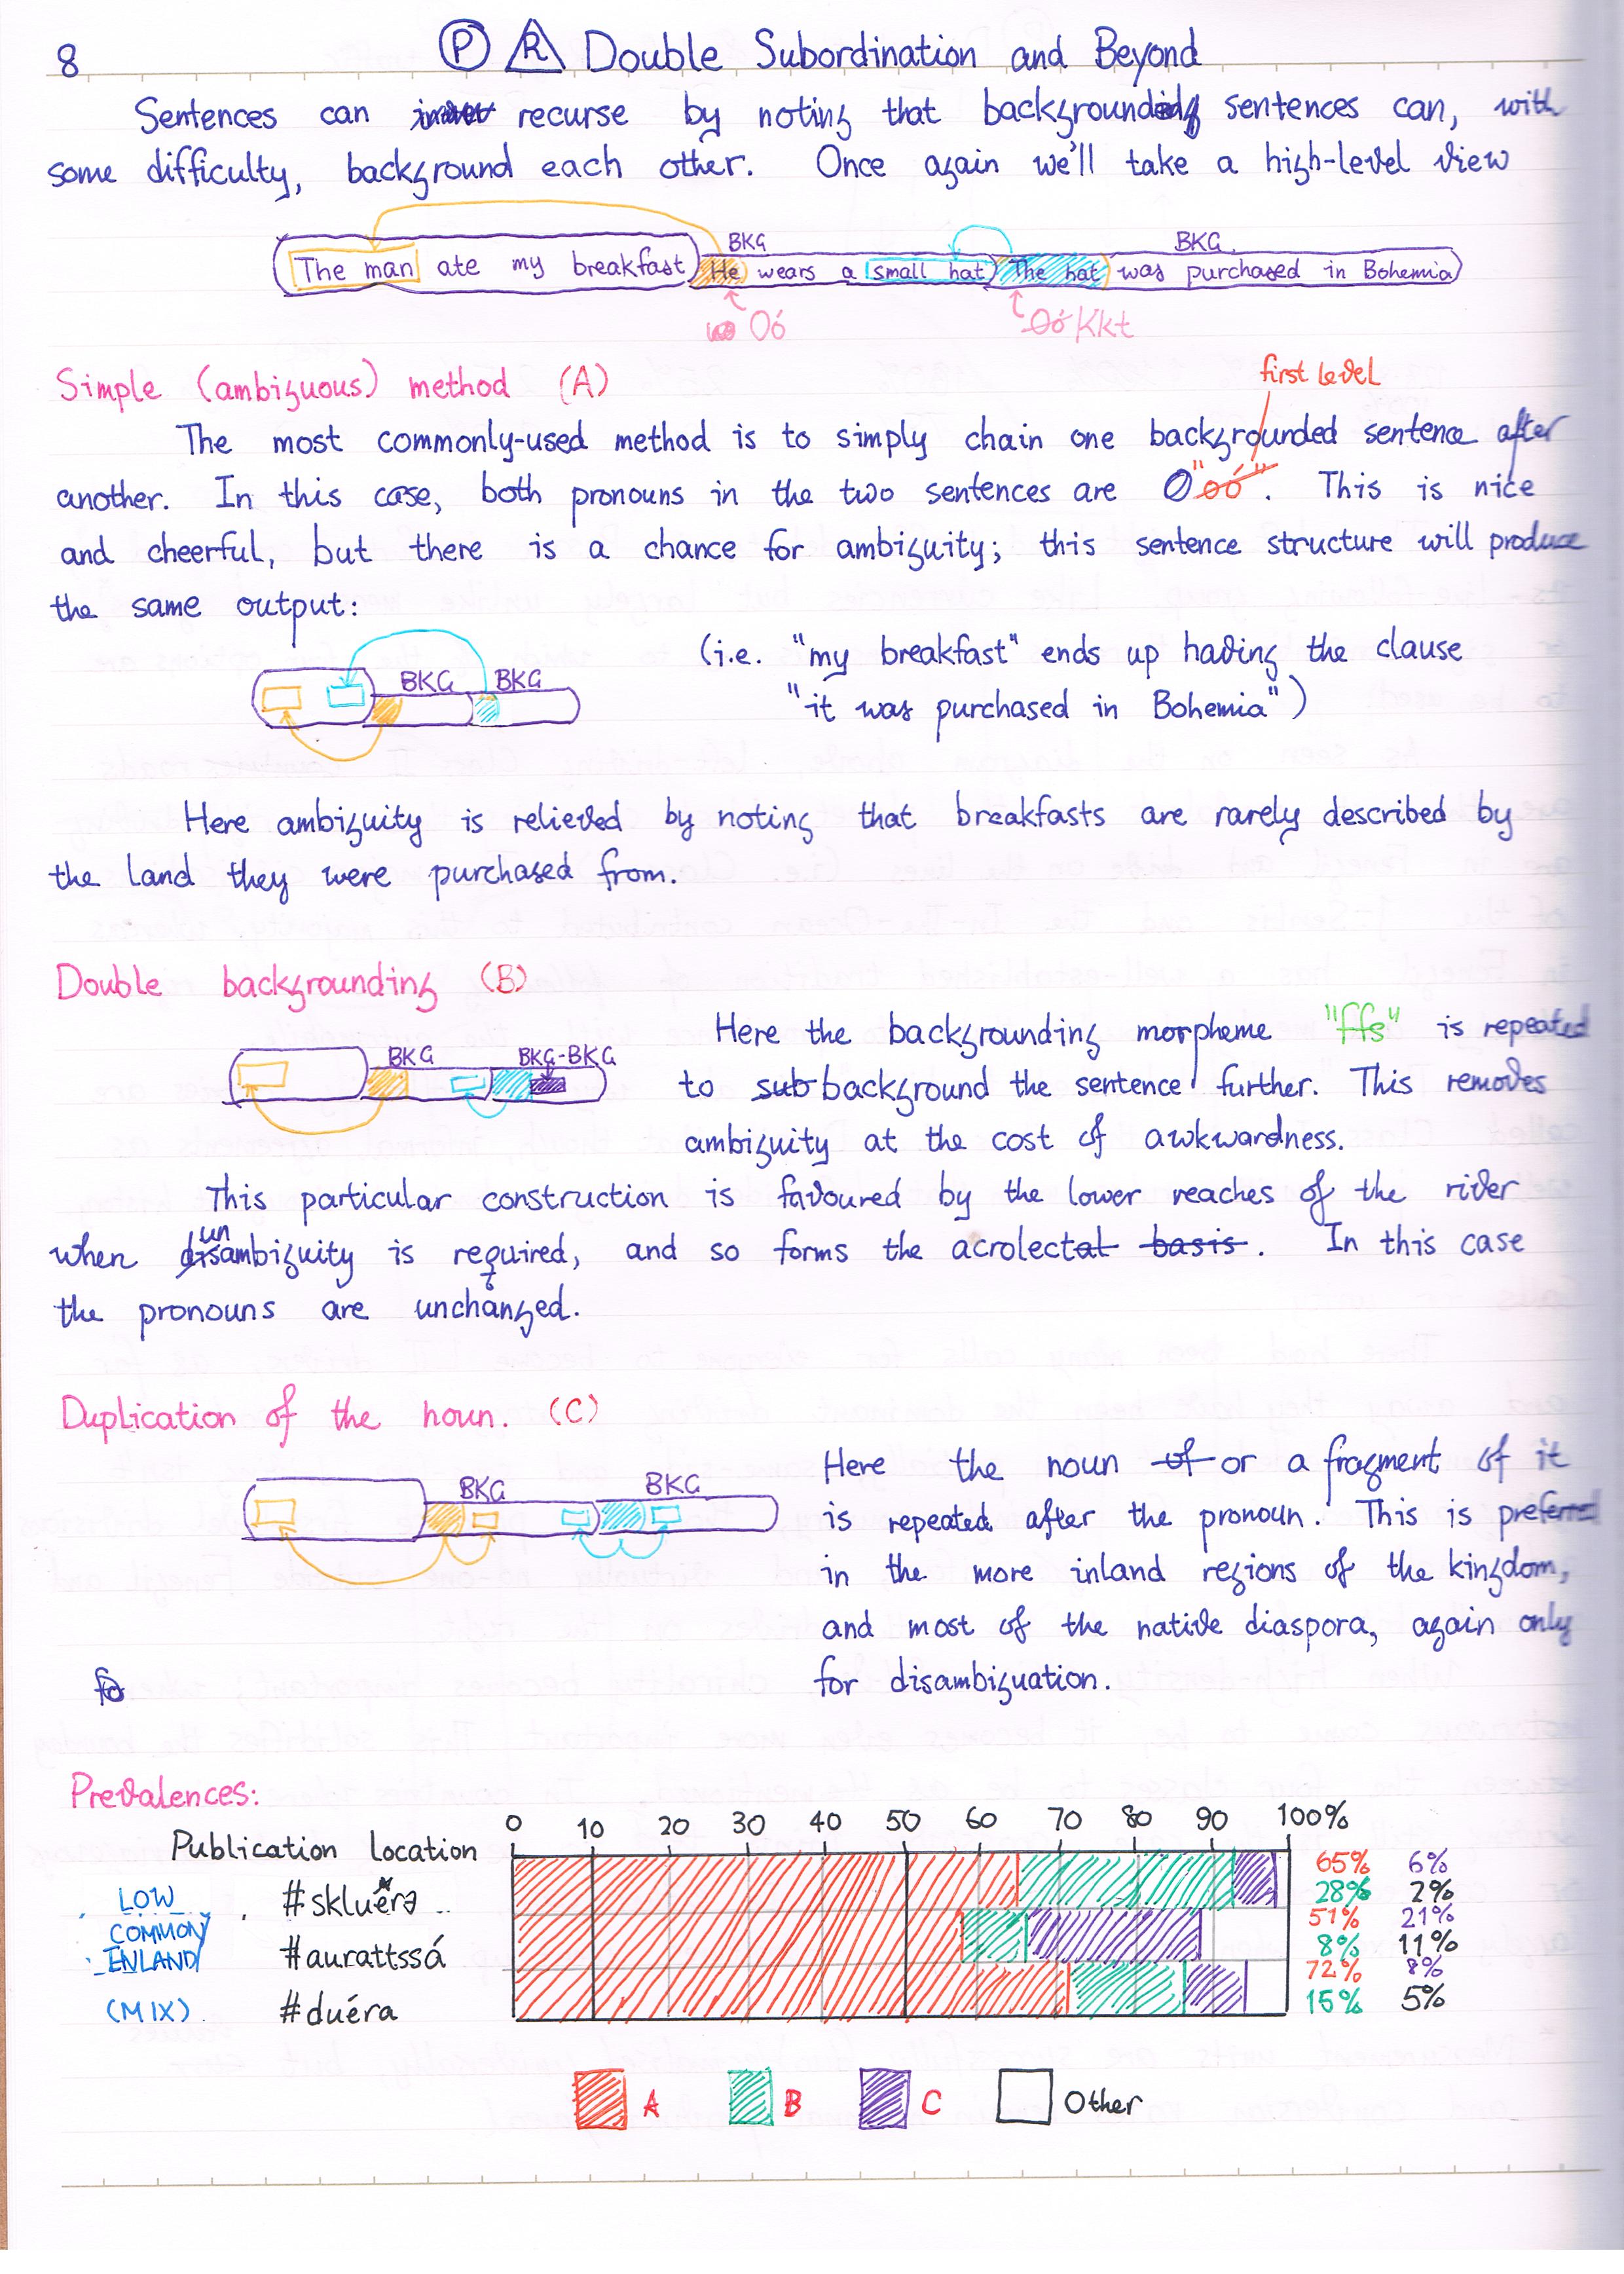 8
P R Double Subordination and Beyond
Sentences can recurse by noting that background sentences can, with
some difficulty, background each other. Once again we'll take a high-level view
BKG BKG
The man ate my breakfast He wears a small hat The hat was purchased in Bohemia
Oó Oó Kkt
Simple (ambiguous) method (A)
first level
The most commonly-used method is to simply chain one backgrounded sentence after
another. In this case, both pronouns in the two sentences are O "oó". This is nice
and cheerful, but there is a chance for ambiguity; this sentence structure will produce
the same output:
BKG BKG
(i.e. "my breakfast" ends up having the clause
"it was purchased in Bohemia")
Here ambiguity is relieved by noting that breakfasts are rarely described by
the land they were purchased from.
Double backgrounding (B)
BKG BKG-BKG
Here the backgrounding morpheme "ffs" is repeated
to subbackground the sentence further. This removes
ambiguity at the cost of awkwardness.
This particular construction is favoured by the lower reaches of the river
when unambiguity is required, and so forms the acrolectal basis. In this case
the pronouns are unchanged.
Duplication of the noun. (C)
BKG BKG
Here the noun of or a fragment of it
is repeated after the pronoun. This is preferred
in the more inland regions of the kingdom,
and most of the native diaspora, again only
for disambiguation.
fo
Prevalences:
0 10 20 30 40 50 60 70 80 90 100%
Publication Location
LOW
COMMON
ENLAND
(MIX)
#skluéra
#aurattssá
#duéra
65% 6%
28% 2%
51% 21%
8% 11%
72% 8%
15% 5%
A B C Other